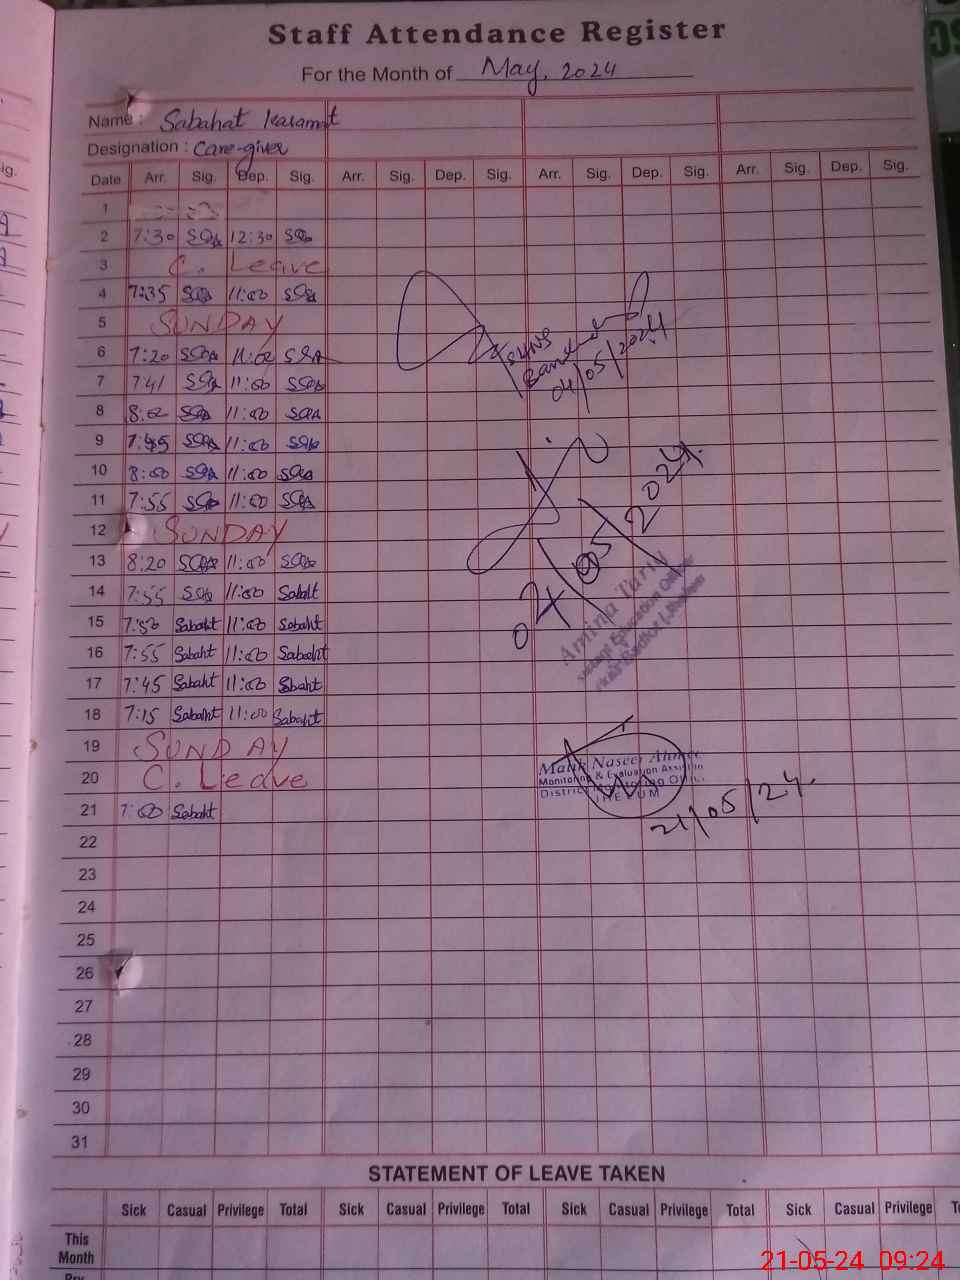 Staff Attendance Register
For the Month of May, 2024
Name : Sabahat Karamat
Designation : Care-giver
Date Arr. Sig. Dep. Sig. Arr. Sig. Dep. Sig. Arr. Sig. Dep. Sig. Arr. Sig. Dep. Sig.
1
2 7:30 12:30
3 C. Leave
4 7:35 11:00
5 SUNDAY
6 7:20 11:02
7 7:41 11:00
8 8:02 11:00
9 7:45 11:00
10 8:00 11:00
11 7:55 11:00
12 SUNDAY
13 8:20 11:00
14 7:55 11:00 Sabaht
15 7:50 Sabaht 11:00 Sabaht
16 7:55 Sabaht 11:00 Sabaht
17 7:45 Sabaht 11:00 Sbaht
18 7:15 Sabaht 11:00 Sabaht
19 SUNDAY
20 C. Leave
21 7:00 Sabaht
22
23
24
25
26
27
28
29
30
31
04/05/2024
Amina Tariq
Malik Naseer Ahmed
Monitoring & Evaluation Assistant
District Monitoring Office
JHELUM
21/05/24
STATEMENT OF LEAVE TAKEN
Sick Casual Privilege Total Sick Casual Privilege Total Sick Casual Privilege Total Sick Casual Privilege
This
Month
21-05-24 09:24